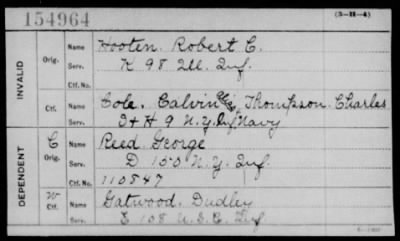 154964
(3-H-4)
INVALID
Orig.
Name Hooten. Robert C.
Serv. K 98 Ill. Inf.
Ctf. No.
Ctf.
Name Cole. Calvin alias Thompson. Charles
Serv. I + H 9 N.Y. Inf Navy
DEPENDENT
C Orig.
Name Reed George
Serv. D 150 N.Y. Inf.
Ctf. No. 110547
W Ctf.
Name Gatwood. Dudley
Serv. E 108 U.S.C. Inf